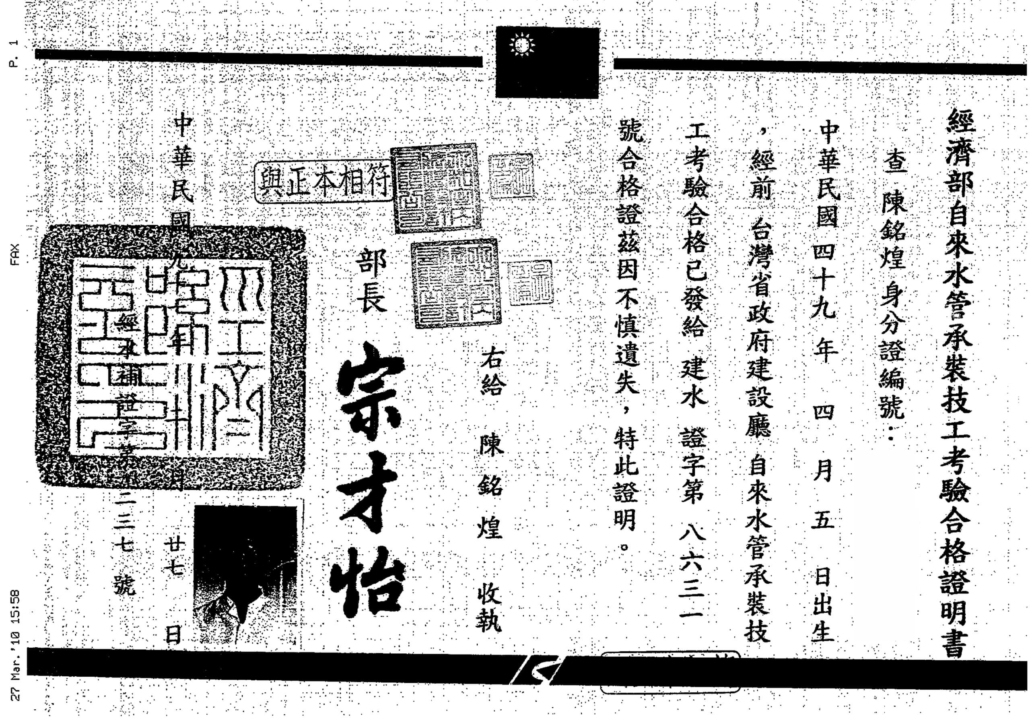 經濟部自來水管承裝技工考驗合格證明書
查 陳銘煌 身分證編號：
中華民國 四十九 年 四 月 五 日出生
，經前 台灣省政府建設廳 自來水管承裝技
工考驗合格已發給 建水 證字第 八六三一
號合格證茲因不慎遺失，特此證明。
右給 陳銘煌 收執
部長 宗才怡
與正本相符
中華民國 九十 年 十 月 廿七 日
經水補證字第 二三七 號
P. 1
FAX
27 Mar. '10 15:58